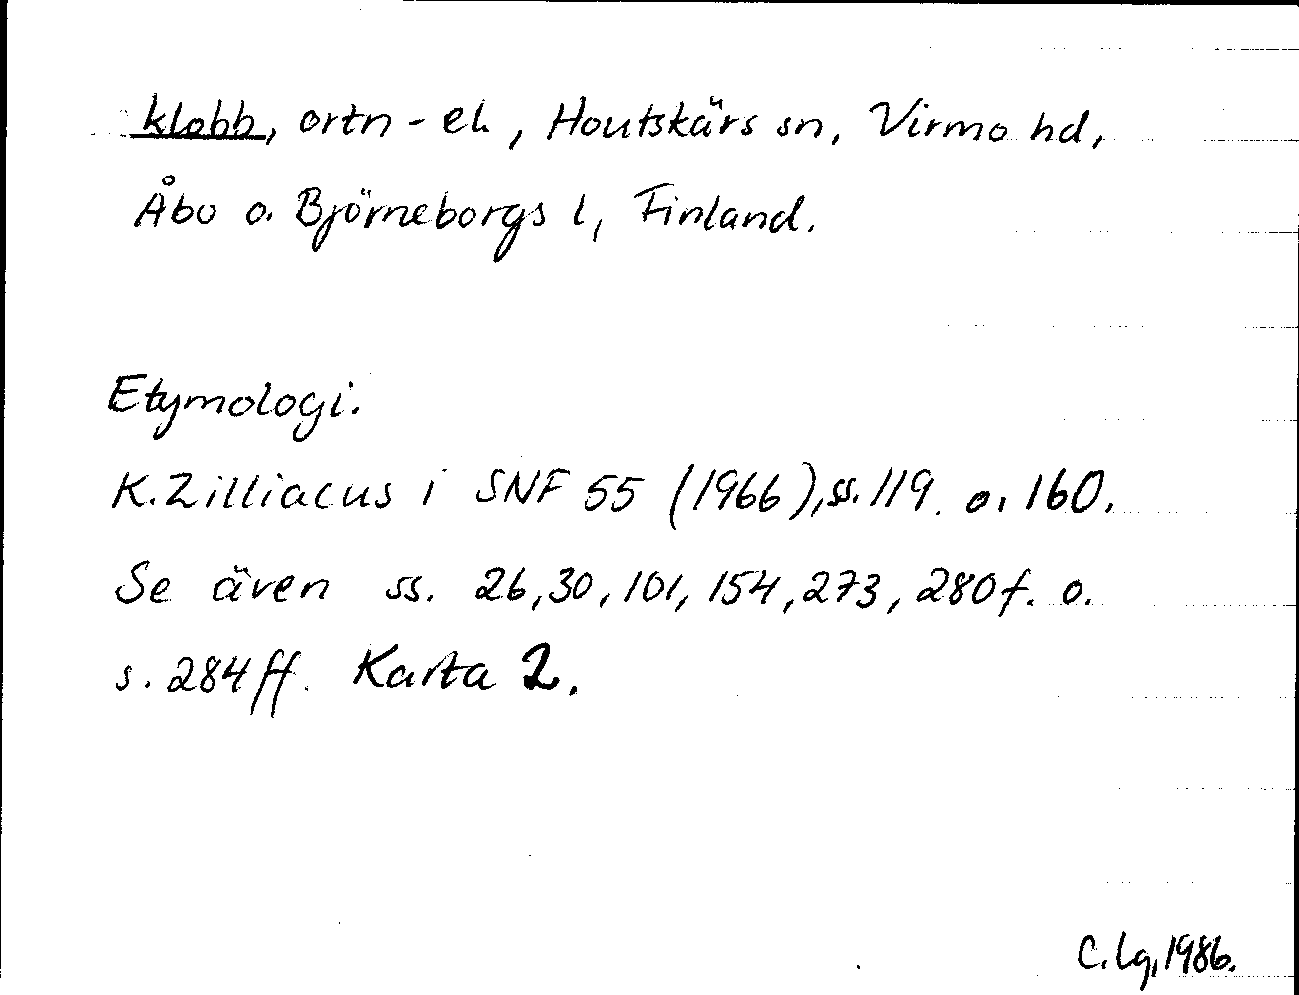 klobb, ortn-el., Houtskärs sn, Virmo hd,
Åbo o. Björneborgs l, Finland.
Etymologi.
K. Zilliacus i SNF 55 (1966), ss. 119. o. 160.
Se även ss. 26, 30, 101, 154, 273, 280f. o.
s. 284ff. Karta 2.
C. Lg, 1986.